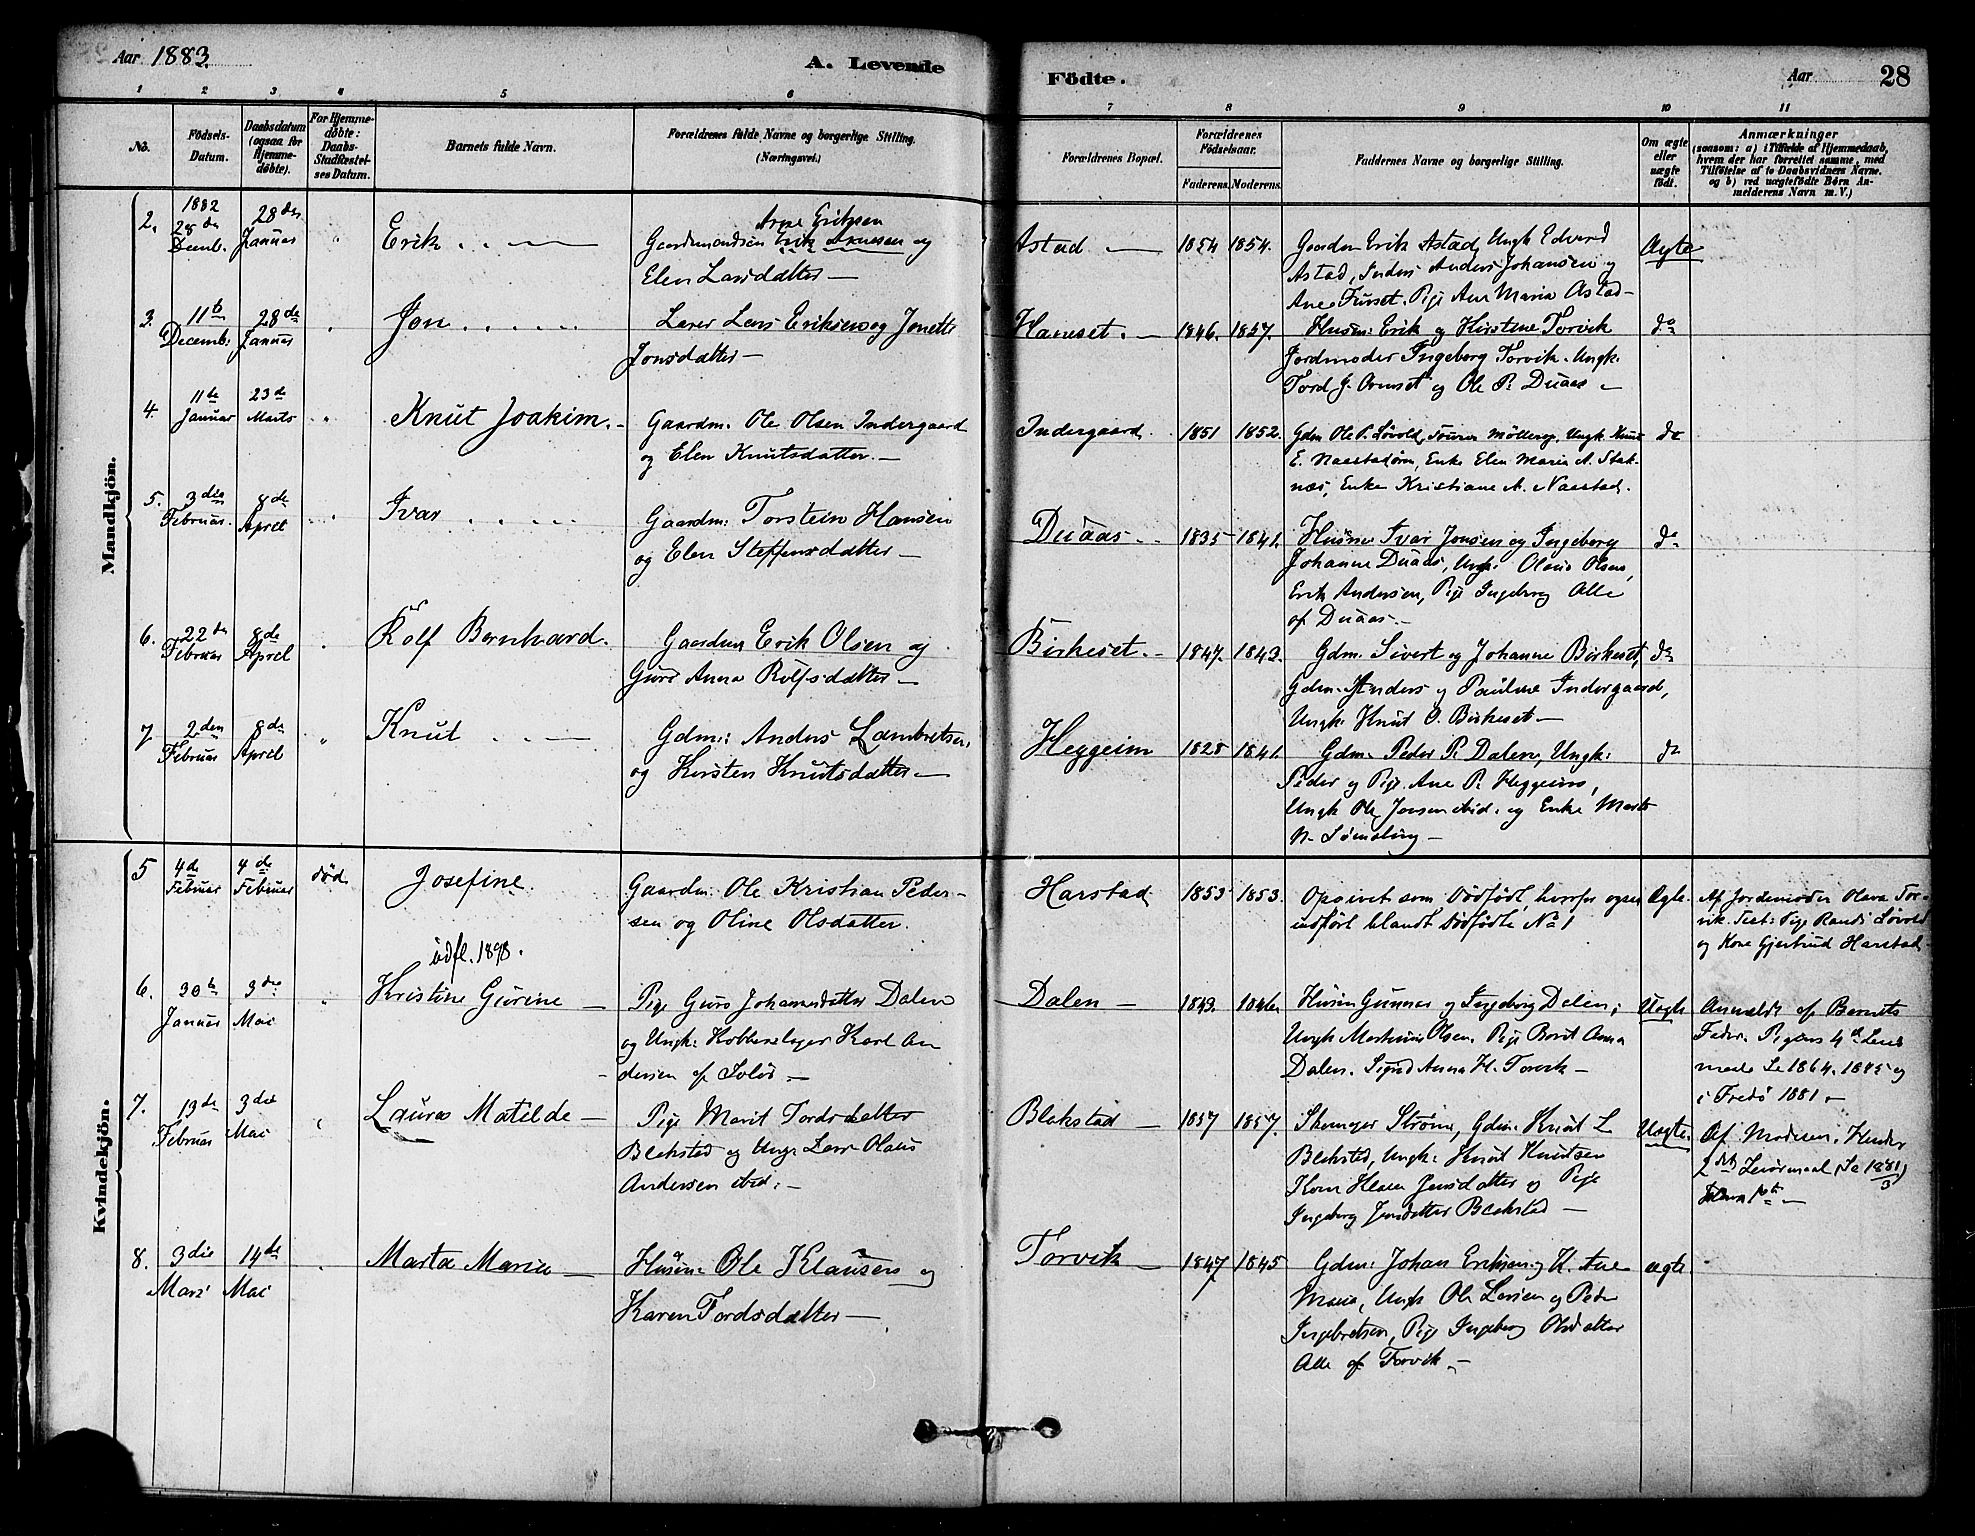 Aar 1883. A. Levende Födte. Aar 28
1 2 3 4 5 6 7 8 9 10 11
No. Födsels-Datum. Daabsdatum (ogsaa for Hjemmedöbte). For Hjemmedöbte: Daabs-Stadfæstelses Datum. Barnets fulde Navn. Forældrenes fulde Navne og borgerlige Stilling. (Næringsvei.) Forældrenes Bopæl. Forældrenes Födselsaar. Faderens. Moderens. Faddernes Navne og borgerlige Stilling. Om ægte eller uægte födt. Anmærkninger (saasom: a) i Tilfælde af Hjemmedaab, hvem der har forrettet samme, med Tilföielse af to Daabsvidners Navne, og b) ved uægtefödte Börn Anmelderens Navn m. V.)
Mandkjön.
2. 1882 28de Decemb. 28de Januar " Erik
Gaardmandsön Arne Eriksen og
Elen Larsdatter —
Astad — 1854 1854. Gaardm Erik Astad, Ungk Edvard
Astad, Anders Johansen og
Ane Furset. Pige Ane Maria Astad —
Ægte
3. 11te Decemb. 28de Januar " Jon
Lærer Lars Eriksen og Jonette
Jonsdatter —
Hamset. — 1846. 1857. Husm: Erik og Kirstine Torvik
Jordmoder Ingeborg Torvik. Ungk:
Tord J. Ornset og Ole P. Duaas —
do
4. 11te Januar 23de Marts " Knut Joakim. —
Gaardm: Ole Olsen Indergaard
og Elen Knutsdatter. —
Indergaard. 1851 1852. Gdm Ole P. Lövold, Möllerop, Ungk. Knut
E. Naastadörn, Enke Elen Maria A. Stak-
næs, Enke Kristiane A. Naastad.
do
5. 3die Februar. 8de April " Ivar
Gaardm: Torstein Hansen
og Elen Steffensdatter —
Duaas. — 1835 1841. Husm: Ivar Jonsen og Ingeborg
Johanne Duaas, Ungk: Olaus Olsen,
Erik Andersen, Pige Ingeborg Alle
af Duaas. —
do
6. 22de Februar 8de April " Rolf Bernhard.
Gaardm Erik Olsen og
Guro Anna Rolfsdatter —
Birkeset. — 1847. 1843. Gdm. Sivert og Johanne Birkeset,
Gdm. Anders og Pauline Indergaard,
Ungk: Knut O. Birkeset —
do
7 2den Februar 8de April " Knut
Gdm: Anders Lambretsen
og Kirsten Knutsdatter —
Heggeim 1828 1841. Gdm. Peder P. Dalen, Ungk:
Peder og Pige Ane P. Heggeim,
Ungk Ole Jonsen ibid. og Enke Marit
N.
do
Kvindekjön.
5 4de Februar 4de Februar död Josefine.
Gaardm: Ole Kristian Peder-
sen og Oline Olsdatter.
Harstad 1853 1853. Opgivet som dödfödt, hvorfor ogsaa
indfört blandt dödfödte No 1
Ægte. Af Jordemoder Olava Tor-
vik. Test: Pige Randi Lövold
og Kone Gjertrud Harstad —
udfl. 1898.
6. 30te Januar 3die Mai " Kristine Gurine —
Pige Guro Johannesdatter Dalen
og Ungk: Kobberslager Karl An
dersen af —
Dalen — 1849. 1846. Husm Gunnar og Ingeborg Dalen;
Ungk Martinus Olsen. Pige Borit Anna
Dalen. Sigrid Anna H. Torvik —
Uægte Anmeldt af Barnets
Fader. Pigens 4de Leier
maal Se 1864. 1875 og
i Fredö 1881 —
7. 13de Februar 3die Mai " Laura Matilde —
Pige Marit Tordsdatter
Blekstad og Ungk Lars Olaus
Andersen ibid: —
Blekstad — 1857 1857. Ström, Gdm: Knut L
Blekstad, Ungk: Knut Knutsen
Kone Jensdatter og Pige
Ingeborg Jensdatter Blekstad —
Uægte. Af Moderen. Hendes
2det Leiermaal (Se 1881)
8. 3die Mars 14de Mai " Marta Maria —
Husm: Ole Klausen og
Karen Tordsdatter —
Torvik — 1847 1845 Gdm: Johan Eriksen og K. Ane
Maria, Ungk Ole Larsen og Peder
Ingebretsen, Pige Ingeborg Olsdatter
Alle af Torvik. —
ægte